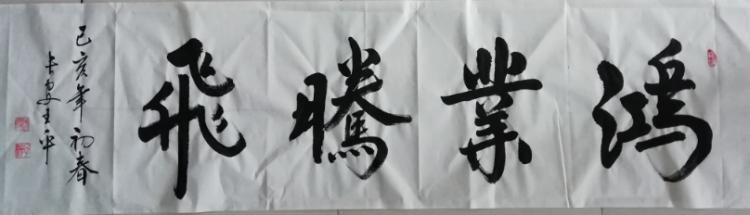 鴻業騰飛
己亥年初春
长安王平